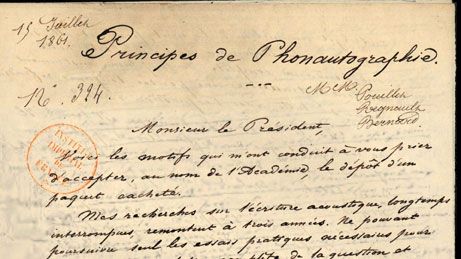 15 Juillet
1861.
Principes de Phonautographie.
N.° 394.
MM.
Pouillet
Regnault
Bernard
Monsieur le Président,
Voici les motifs qui m'ont conduit à vous prier
d'accepter, au nom de l'Académie, le dépôt d'un
paquet cacheté.
Mes recherches sur l'écriture acoustique, longtemps
interrompues, remontent à trois années. Ne pouvant
poursuivre seul les essais pratiques nécessaires pour
de la question et